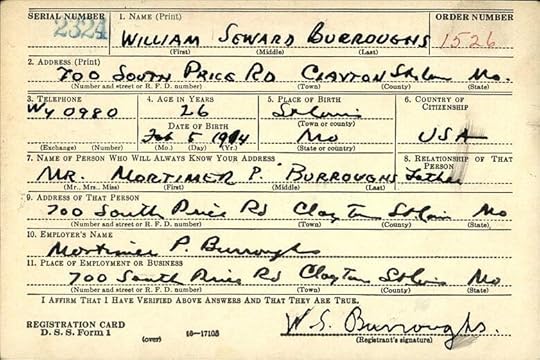 SERIAL NUMBER 1. NAME (Print) ORDER NUMBER
2324 WILLIAM SEWARD BURROUGHS 1526
(First) (Middle) (Last)
2. ADDRESS (Print)
700 SOUTH PRICE RD CLAYTON St Louis Mo.
(Number and street or R. F. D. number) (Town) (County) (State)
3. TELEPHONE 4. AGE IN YEARS 5. PLACE OF BIRTH 6. COUNTRY OF CITIZENSHIP
WY 0980 26 St Louis
(Town or county)
DATE OF BIRTH
Feb 5 1914 Mo USA
(Exchange) (Number) (Mo.) (Day) (Yr.) (State or country)
7. NAME OF PERSON WHO WILL ALWAYS KNOW YOUR ADDRESS 8. RELATIONSHIP OF THAT PERSON
MR. MORTIMER P. BURROUGHS Father
(Mr., Mrs., Miss) (First) (Middle) (Last)
9. ADDRESS OF THAT PERSON
700 South Price Rd Clayton St Louis Mo
(Number and street or R. F. D. number) (Town) (County) (State)
10. EMPLOYER'S NAME
Mortimer P. Burroughs
11. PLACE OF EMPLOYMENT OR BUSINESS
700 South Price Rd Clayton St Louis Mo
(Number and street or R. F. D. number) (Town) (County) (State)
I AFFIRM THAT I HAVE VERIFIED ABOVE ANSWERS AND THAT THEY ARE TRUE.
REGISTRATION CARD
D. S. S. Form 1 (over) 16—17105 W. S. Burroughs.
(Registrant's signature)